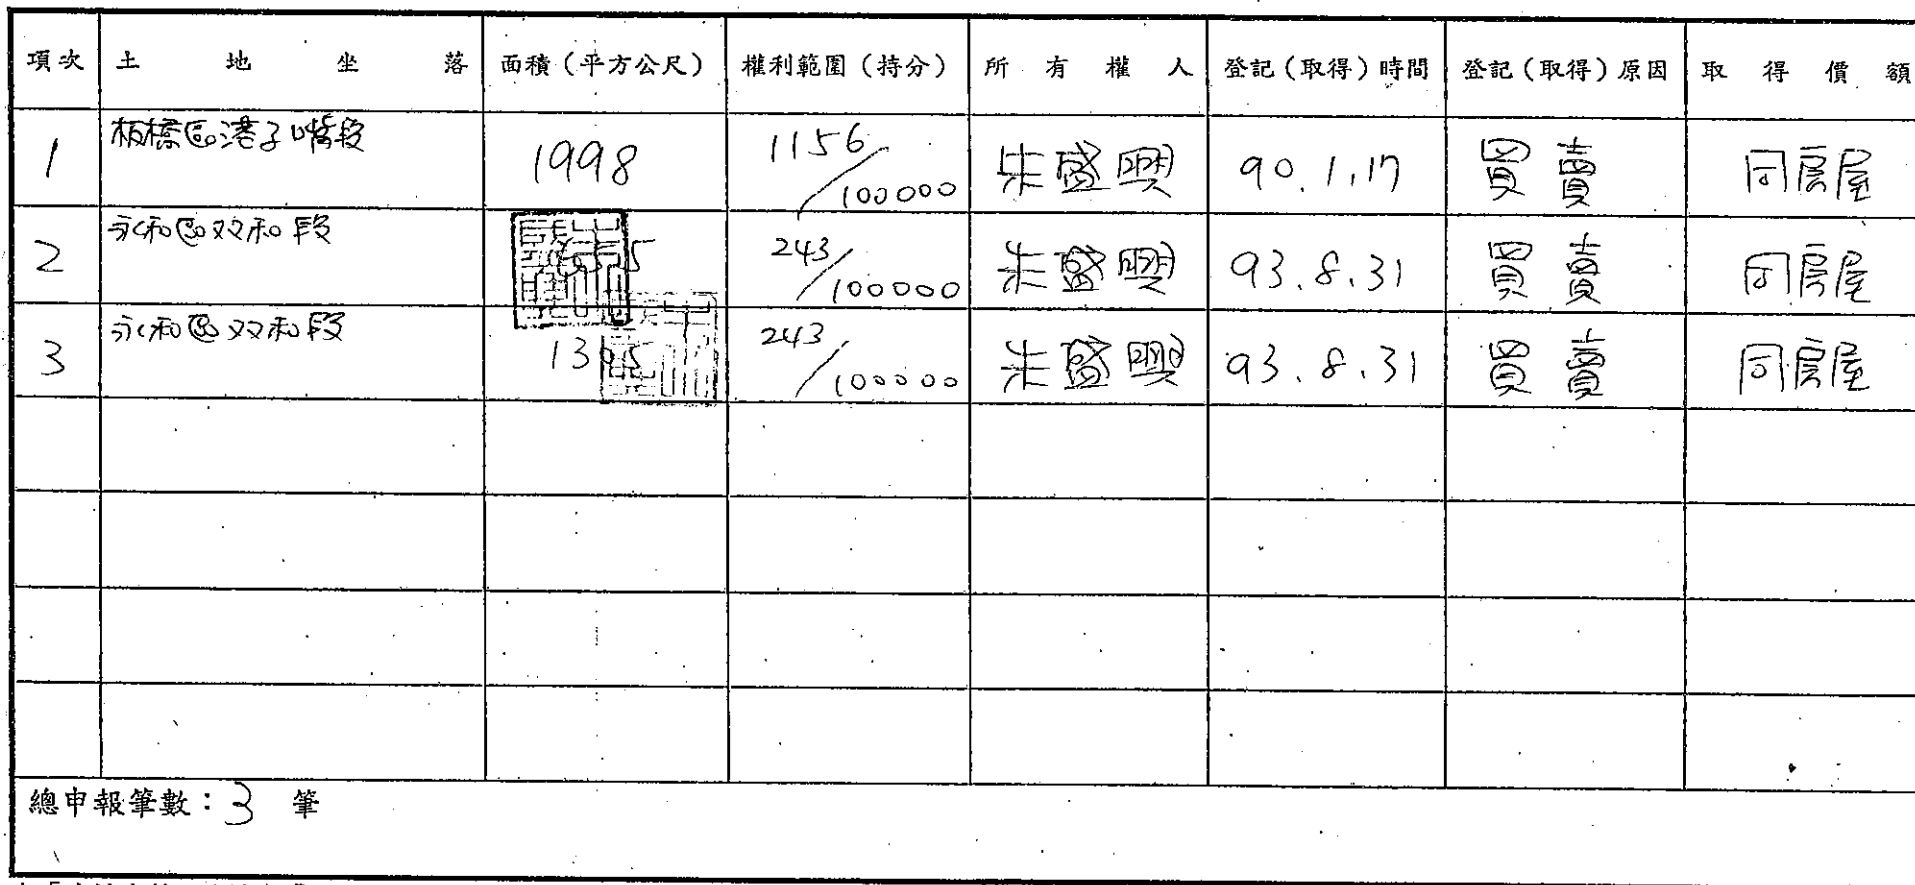 項次 土地坐落 面積（平方公尺） 權利範圍（持分） 所有權人 登記（取得）時間 登記（取得）原因 取得價額
1 板橋區港子嘴段 1998 1156/100000 朱盛興 90.1.17 買賣 同房屋
2 永和區双和段 243/100000 朱盛興 93.8.31 買賣 同房屋
3 永和區双和段 243/100000 朱盛興 93.8.31 買賣 同房屋
總申報筆數：3 筆